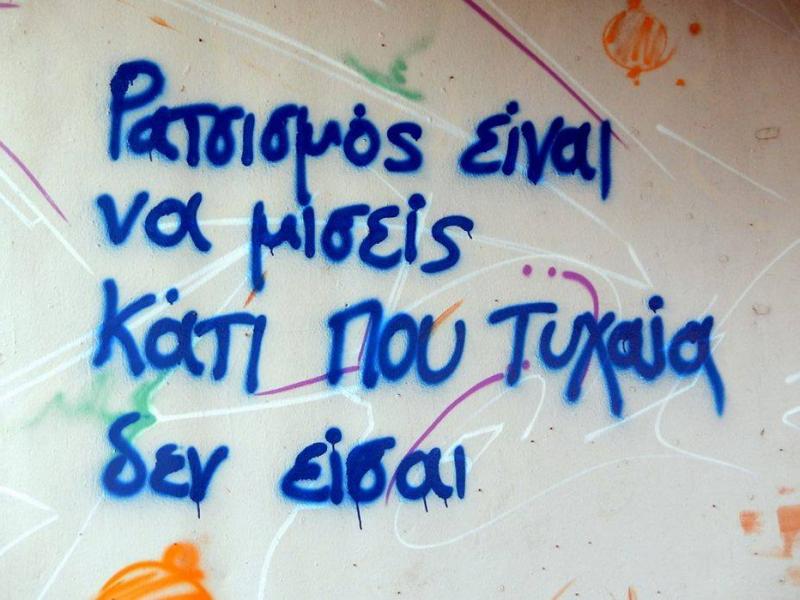 Ρατσισμός είναι
να μισείς
Κάτι Που Τυχαία
δεν είσαι